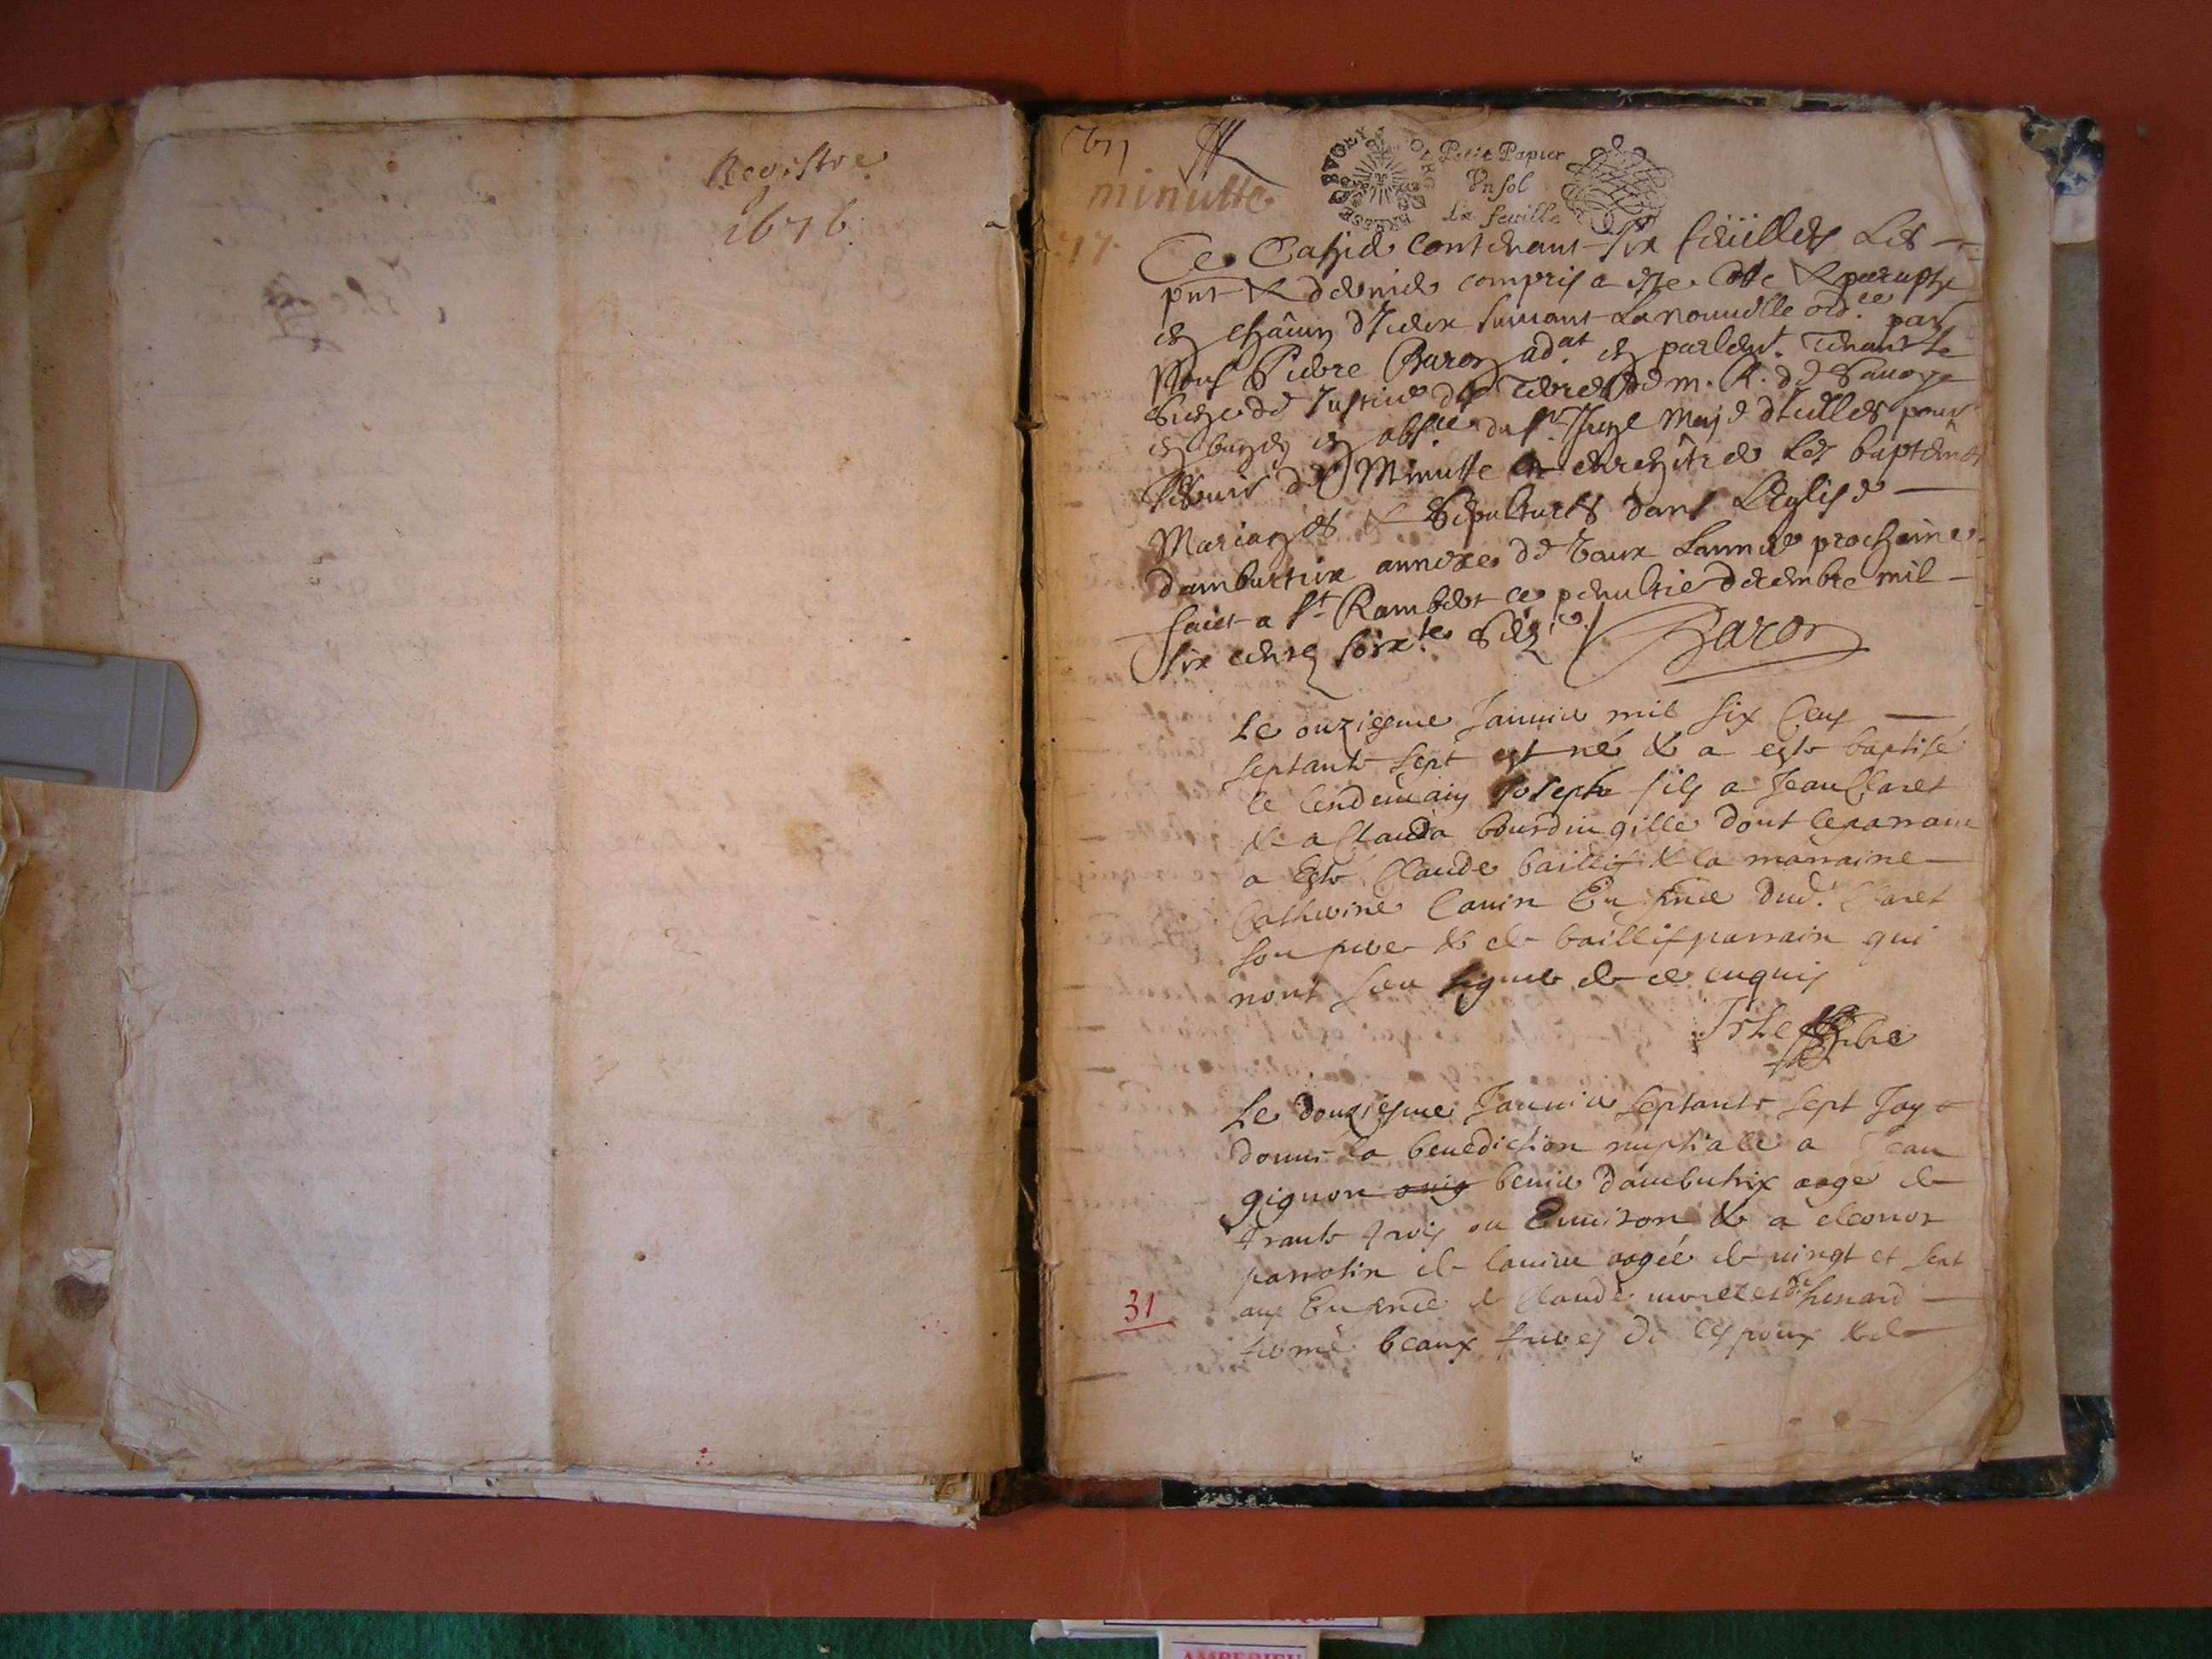 Registre
1676
minutte
77
BOURG BRESSE BUGEY
Petit Papier
Un sol
La feuille
Ce Cahier contenant six feüilles Les
pnt & dernier compris a este Cotté & paraphé
en chacun d'Iceux suivant La nouvelle ord.ce par
Nous Pierre Baron ad.at en parlem.t tenant le
siege de Justice des terres de m. R. de Savoye
en bugey en abs.ce du s.r Juge Maje d'Icelles pour
servir de Minutte & enregitrer les baptemes
Mariages & Sepultures dans L'Eglise
dambutrix annexe de Vaux Lannée prochaine
faict a S.t Rambert ce penultie decembre mil
six cents soix.te seize Baron
Le onziesme Janvier mil six Cens
septante sept est né & a esté baptisé
le lendemain Joseph fils a Jean Claret
& a Clauda bourdin gille dont le parrain
a Esté Claude baillif & la marraine
Catherine Cauin En pnce dud. Claret
son pere & de baillif parrain qui
nont sceu signer de ce enquis
Le douziesme Janvier septante sept Jay
donné la benediction nuptiale a Jean
gignon benier dambutrix aagé de
trante trois ou Environ & a eleonor
parrotin de aagée de vingt et sept
ans En pnce de Claude et henard
31
beaux freres de espoux & de